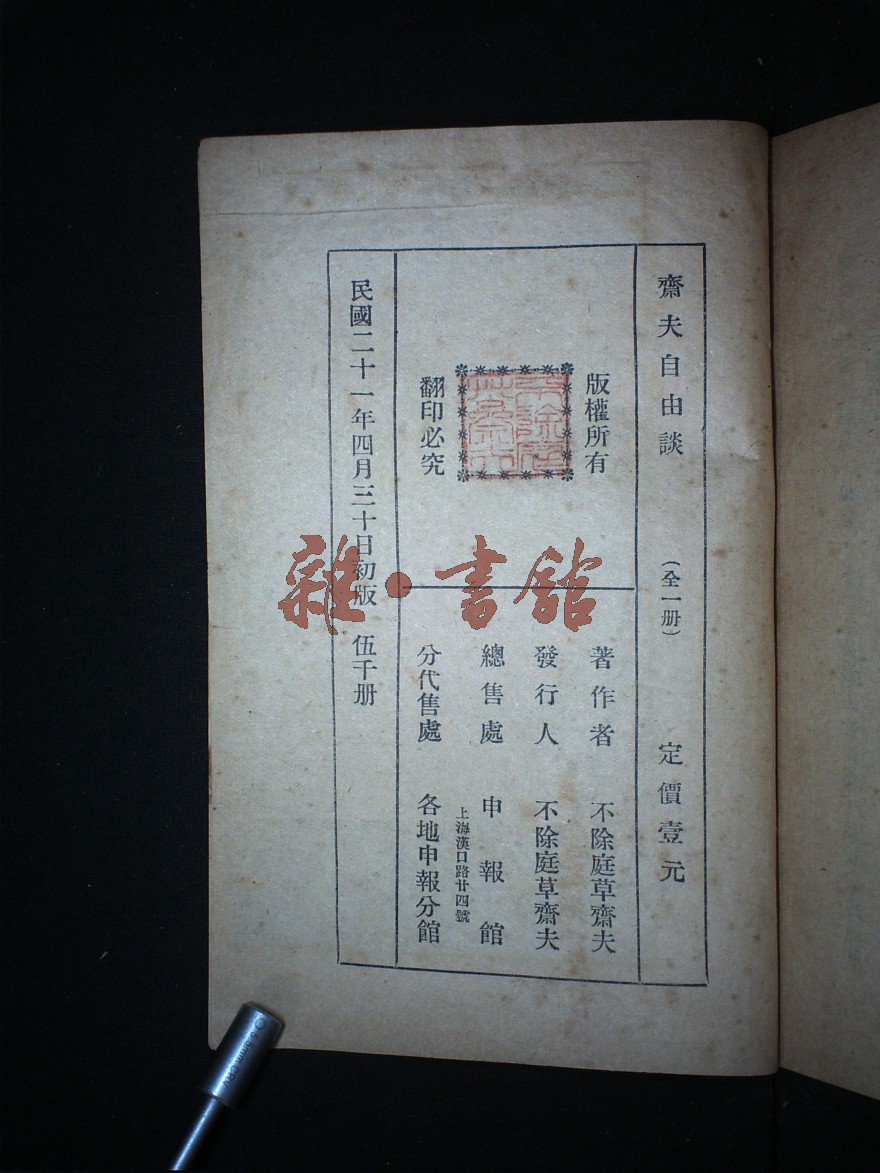 齋夫自由談 (全一册) 定價壹元
版權所有
不除庭草齋夫
翻印必究
著作者 不除庭草齋夫
發行人 不除庭草齋夫
總售處 申報館
上海漢口路廿四號
分代售處 各地申報分館
民國二十一年四月三十日初版 伍千册
雜·書館